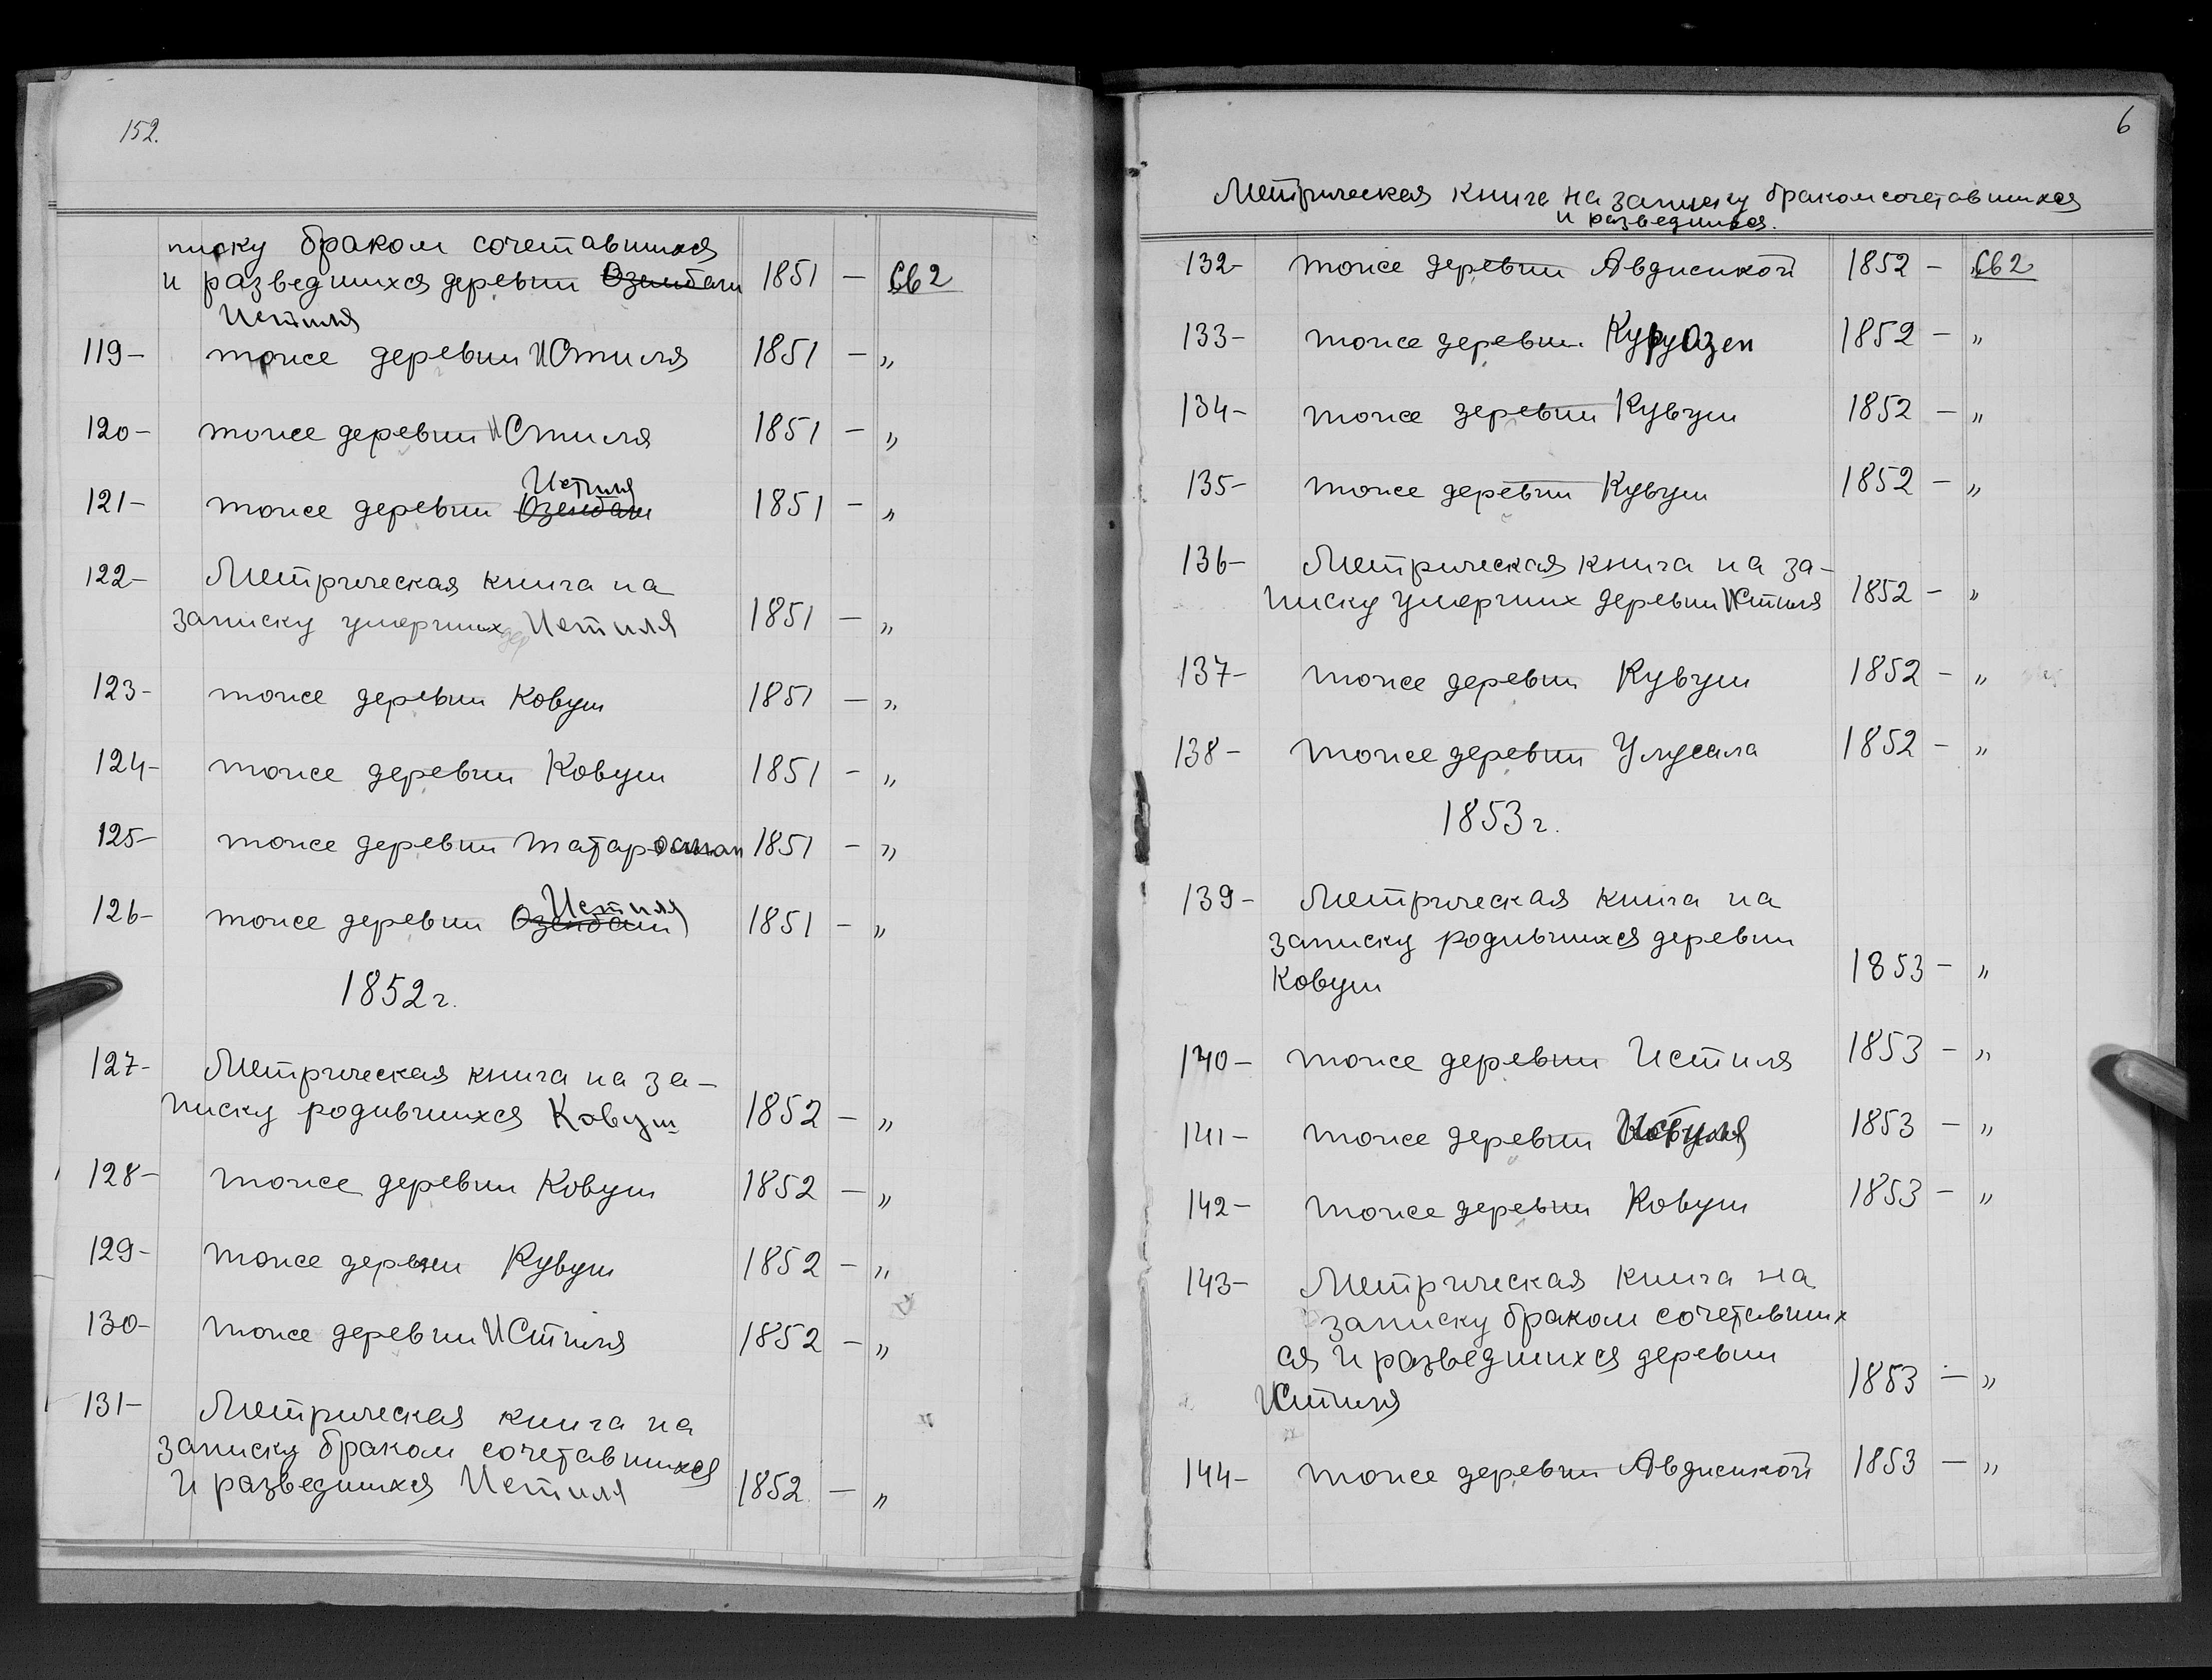 152.
писку браком сочетавшихся
и разведшихся деревни Озенбаш 1851 — Св 2
Истиля
119- тоже деревни Истиля 1851 — „
120- тоже деревни Истиля 1851 — „
Истиля
121- тоже деревни Озенбаш 1851 — „
122- Метрическая книга на
записку умерших дер Истиля 1851 — „
123- тоже деревни Ковуш 1851 — „
124- тоже деревни Ковуш 1851 — „
125- тоже деревни татаросман 1851 — „
Истиля
126- тоже деревни Озенбаш 1851 — „
1852 г.
127- Метрическая книга на за-
писку родившихся Ковуш 1852 — „
128- тоже деревни Ковуш 1852 — „
129- тоже деревни Кувуш 1852 — „
130- тоже деревни Истиля 1852 — „
131- Метрическая книга на
записку браком сочетавшихся
и разведшихся Истиля 1852 — „
6
Метрическая книга на записку бракомсочетавшихся
и разведшихся.
132- тоже деревни Авджикой 1852 — Св 2
133- тоже деревни КуруОзен 1852 — „
134- тоже деревни Кувуш 1852 — „
135- тоже деревни Кувуш 1852 — „
136- Метрическая книга на за-
писку умерших деревни Истиля 1852 — „
137- тоже деревни Кувуш 1852 — „
138- тоже деревни Улусала 1852 — „
1853 г.
139- Метрическая книга на
записку родившихся деревни
Ковуш 1853 — „
140- тоже деревни Истиля 1853 — „
141- тоже деревни Истиля 1853 — „
142- тоже деревни Ковуш 1853 — „
143- Метрическая книга на
записку браком сочетавших
ся и разведшихся деревни
Истиля 1853 — „
144- тоже деревни Авджикой 1853 — „